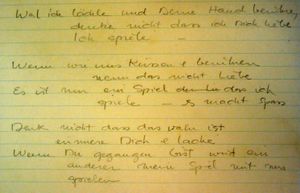 Weil ich lächle und Deine Hand berühre
denke nicht dass ich Dich liebe
Ich spiele
Wenn wir uns Küssen & berühren
nenn das nicht Liebe
Es ist nur ein Spiel das ich
spiele — es macht Spass
Denk nicht dass das wahr ist
erinnere Dich & lache
Wenn Du gegangen bist wird ein
anderer mein Spiel mit mir
spielen